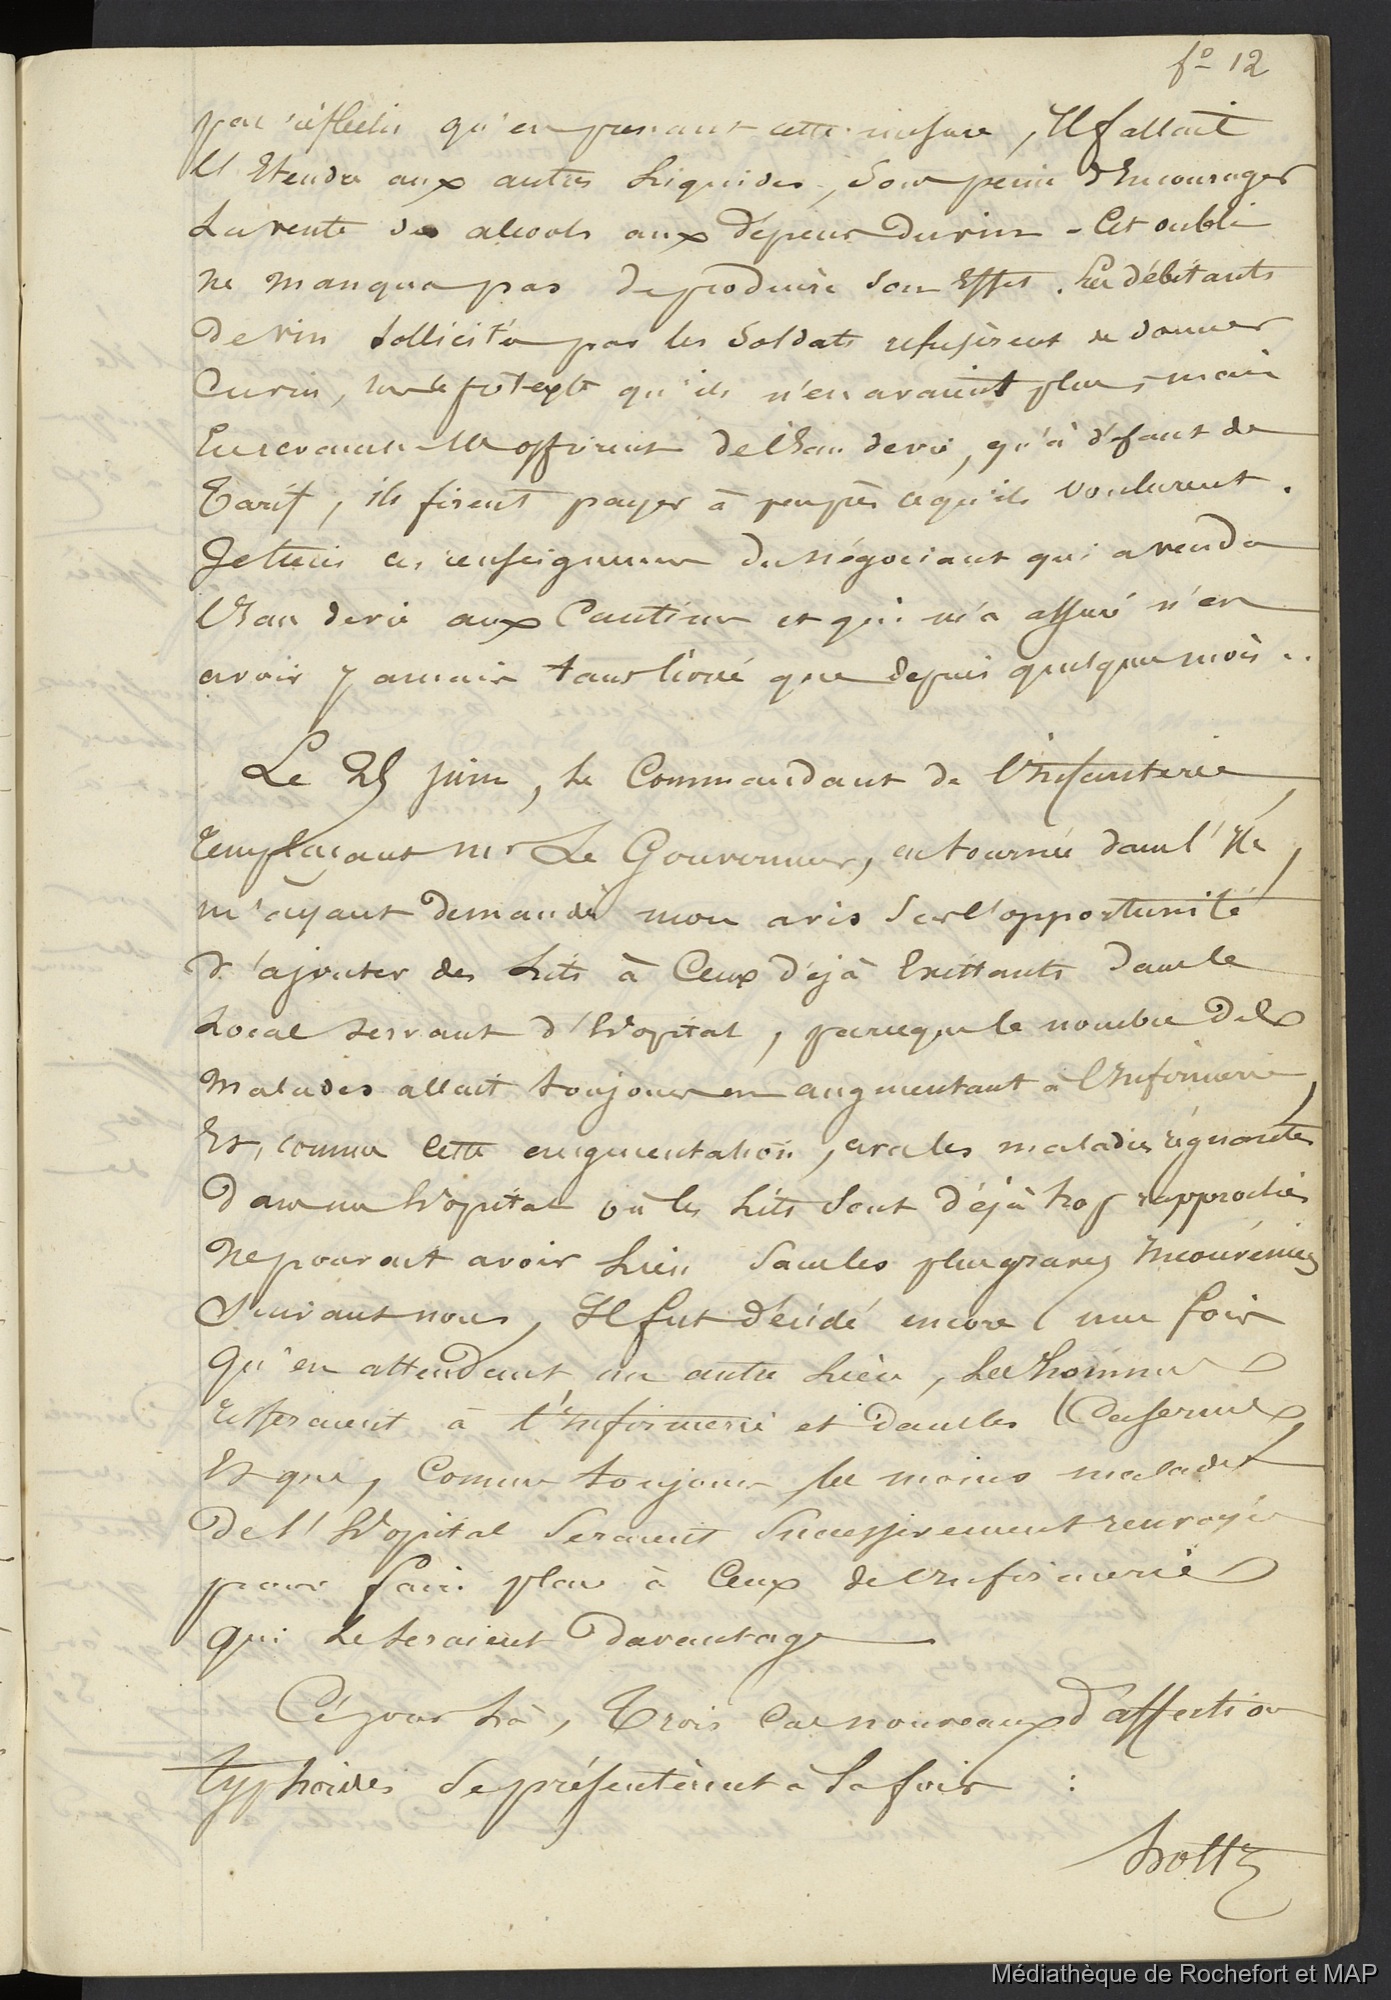 fo 12
pas réfléchi qu'en prenant cette mesure, Il fallait
l'Etendre aux autres Liquides, sous peine d'Encourager
La vente des alcools aux dépens du vin - Cet oubli
ne manqua pas de produire son Effet. Les débitants
de vin sollicités par les soldats refusèrent de donner
du vin, sous le prétexte qu'ils n'en avaient plus, mais
En revanche Ils offrirent de l'Eau de vie, qu'à défaut de
Tarif, ils firent payer à peu près ce qu'ils voulurent.
Je tiens ces renseignements du négociant qui a vendu
l'Eau de vie aux Cantines et qui m'a assuré n'en
avoir jamais tant livré que depuis quelques mois..
Le 25 juin, Le Commandant de l'Infanterie
remplaçant Mr Le Gouverneur, en tournée dans l'Ile,
m'ayant demandé mon avis sur l'opportunité
d'ajouter des Lits à Ceux déjà Existants dans le
Local servant d'Hopital, parceque le nombre des
Malades allait toujours en augmentant à l'Infirmerie,
Et, comme Cette augmentation, avec les maladies régnantes
dans un hopital où les Lits sont déjà trop rapprochés
ne pouvait avoir Lieu sans les plus graves Inconvénients
suivant nous, Il fut décidé encore une fois
qu'en attendant un autre Lieu, Les hommes
resteraient à l'Infirmerie et dans les Casernes
Et que, Comme toujours les moins malades
de l'hopital seraient successivement renvoyés
pour faire place à Ceux de l'Infirmerie
qui le seraient davantage
Ce jour Là, Trois Cas nouveaux d'affection
typhoïdes se présentèrent à la fois :